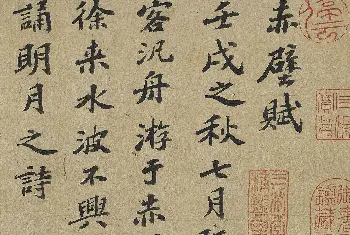 赤壁賦
壬戌之秋七月
客汎舟游于赤
徐来水波不興
誦明月之詩